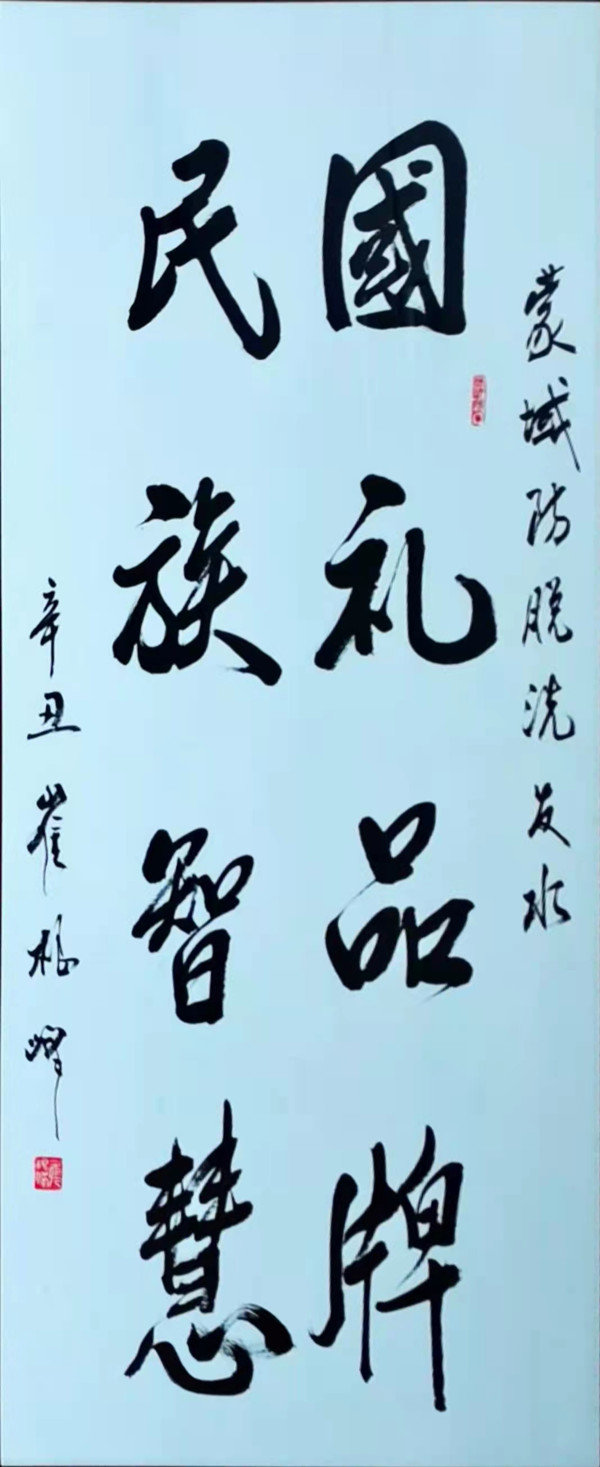 蒙域防脱洗发水
國礼品牌
民族智慧
辛丑 崔根峰